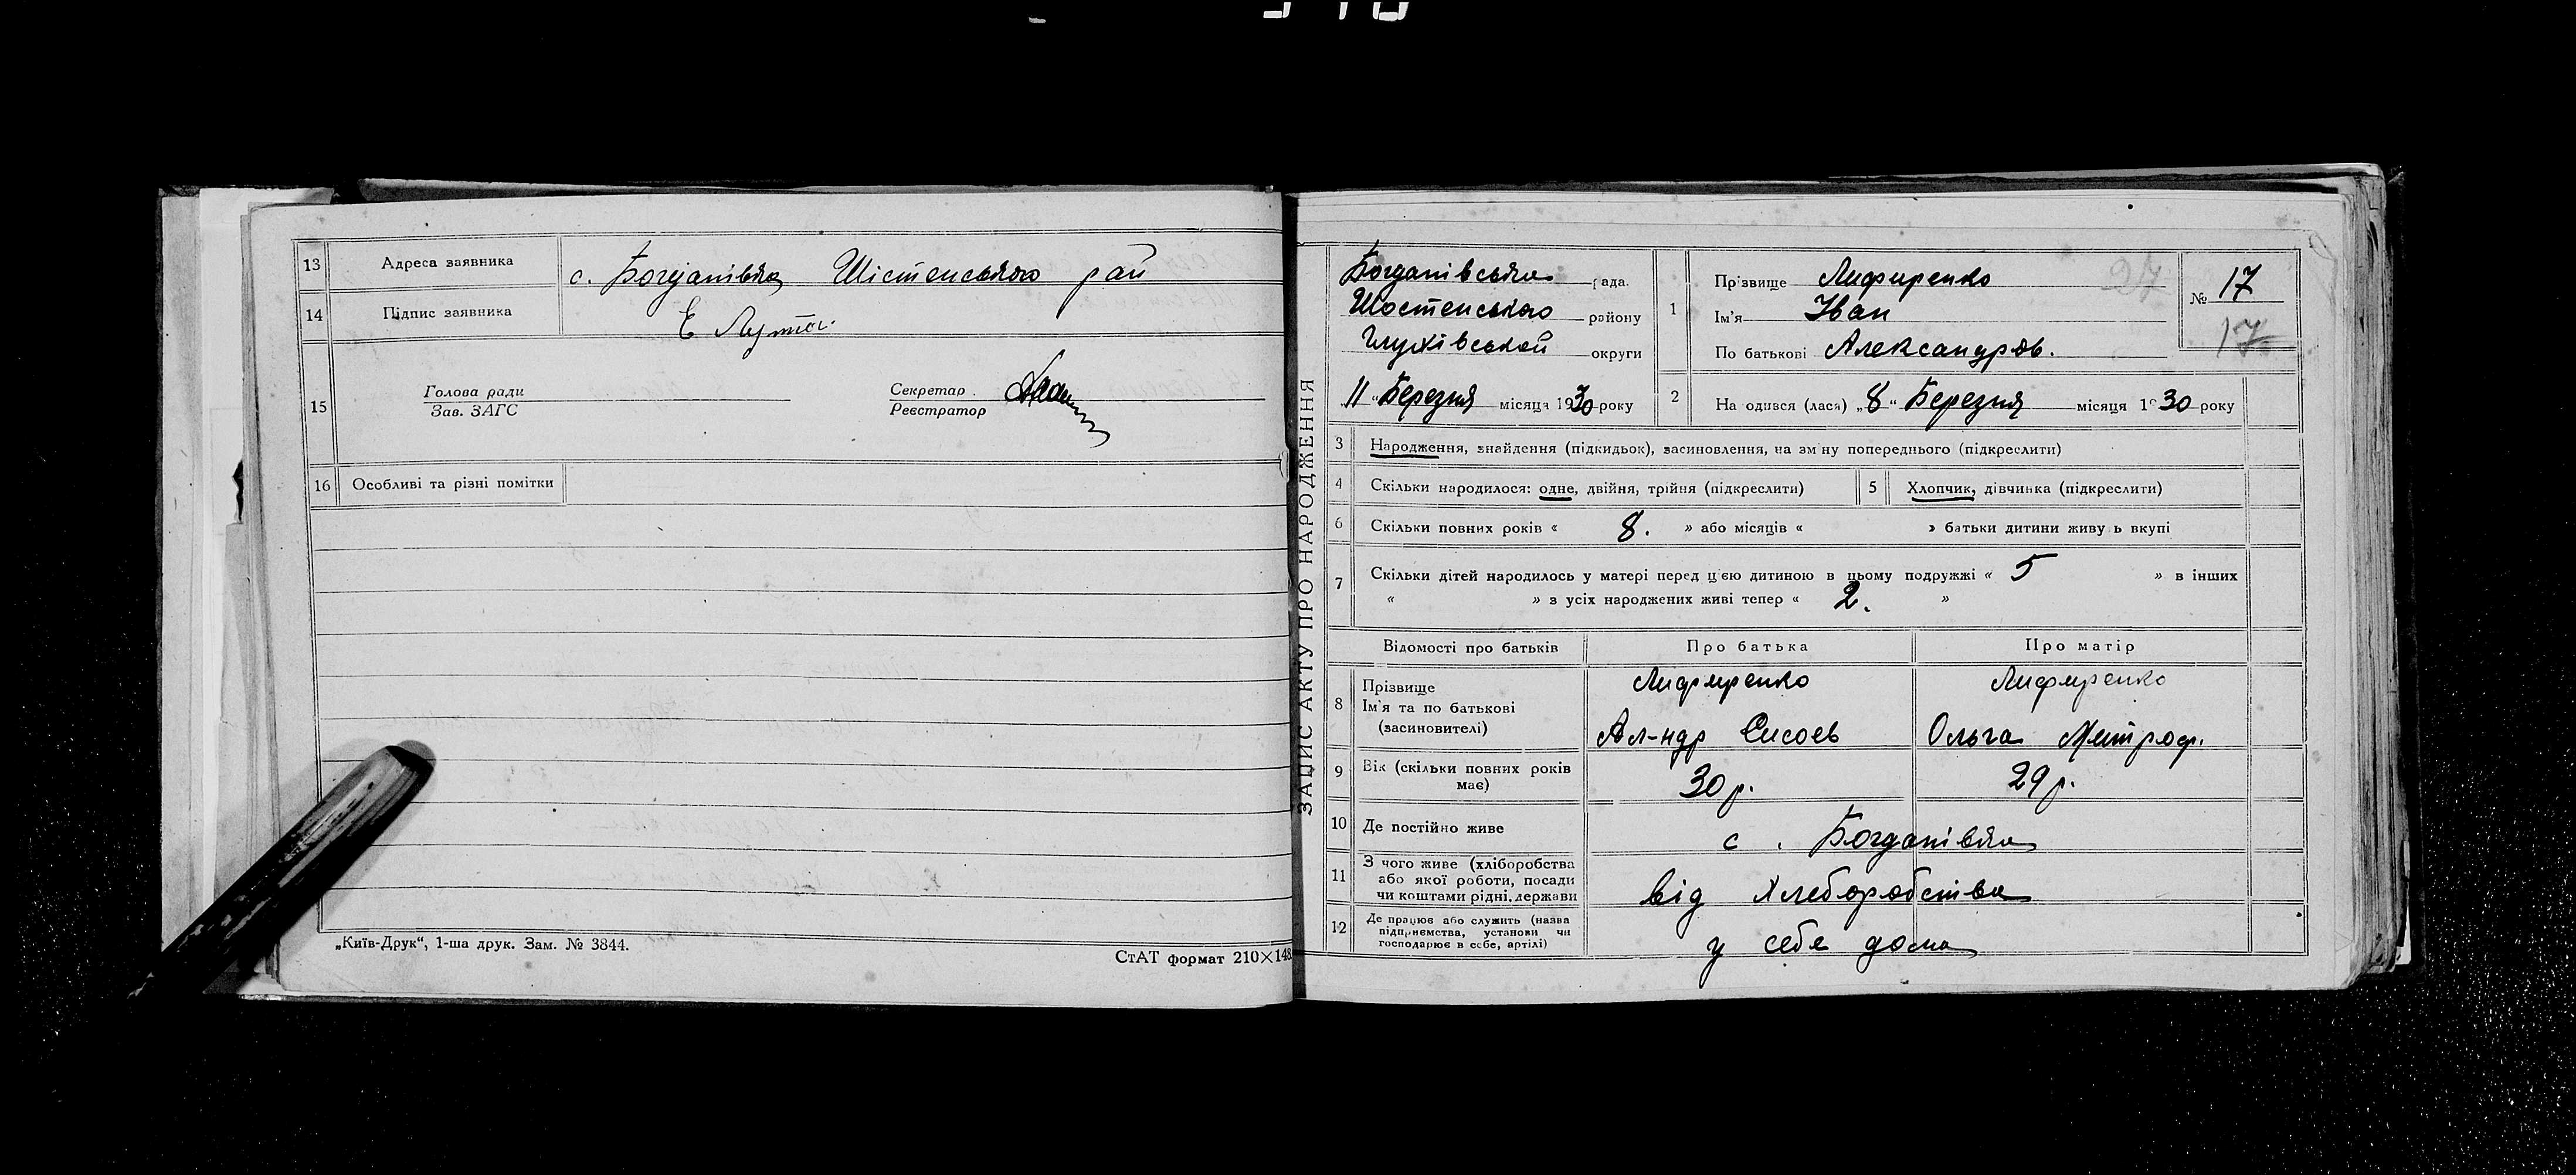 13 Адреса заявника с. Богданівка Шістенського рай
14 Підпис заявника Е Лута
15 Голова ради
Зав. ЗАГС
Секретар
Реєстратор
16 Особливі та різні помітки
„Київ-Друк“, 1-ша друк. Зам. № 3844.
СтАТ формат 210×148
ЗАПИС АКТУ ПРО НАРОДЖЕННЯ
Богданівська рада
Шостенського району
Глухівської округи
„11“ Березня місяця 1930 року
1 Прізвище Лифиренко
Ім'я Іван
По батькові Александров.
27
№ 17
17
2 Народився (лася) „8“ Березня місяця 1930 року
3 Народження, знайдення (підкидьок), засиновлення, на зміну попереднього (підкреслити)
4 Скільки народилося: одне, двійня, трійня (підкреслити)
5 Хлопчик, дівчинка (підкреслити)
6 Скільки повних років « 8. » або місяців « » батьки дитини живуть вкупі
7 Скільки дітей народилось у матері перед цією дитиною в цьому подружжі « 5 » в інших
« » з усіх народжених живі тепер « 2. »
Відомості про батьків Про батька Про матір
8 Прізвище
Ім'я та по батькові
(засиновителі)
Лифиренко Лифиренко
Ал-ндр Сисоев Ольга Митроф.
9 Вік (скільки повних років
має)
30 р. 29 р.
10 Де постійно живе с. Богданівка
11 З чого живе (хліборобства
або якої роботи, посади
чи коштами рідні, держави
від хлеборобства
12 Де працює або служить (назва
підприємства, установи чи
господарює в себе, артілі)
у себе дома